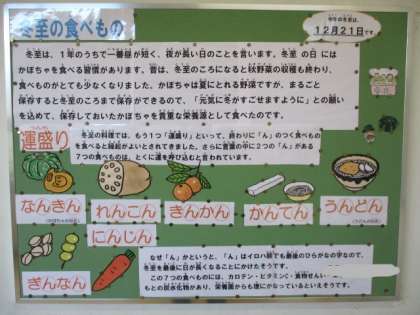 冬至の食べもの
今年の冬至は、
12月21日です
冬至は、1年のうちで一番昼が短く、夜が長い日のことを言います。冬至の日には
かぼちゃを食べる習慣があります。昔は、冬至のころになると秋野菜の収穫も終わり、
食べものがとても少なくなりました。かぼちゃは夏にとれる野菜ですが、まるごと
保存すると冬至のころまで保存ができるので、「元気に冬がすごせますように」との願い
を込めて、保存しておいたかぼちゃを貴重な栄養源として食べたのです。
運盛り
冬至の料理では、もう1つ「運盛り」といって、終わりに「ん」のつく食べもの
を食べると縁起がよいとされてきました。さらに言葉の中に2つの「ん」がある
7つの食べものは、とくに運を呼び込むと言われています。
なんきん
れんこん
きんかん
かんてん
うんどん
にんじん
ぎんなん
なぜ「ん」かというと、「ん」はイロハ順でも最後のひらがなの字なので、
冬至を最後に日が長くなることにかけたそうです。
この7つの食べものには、カロテン・ビタミンC・食物せんい・
もとの炭水化物があり、栄養面からも理にかなっているといえそうです。